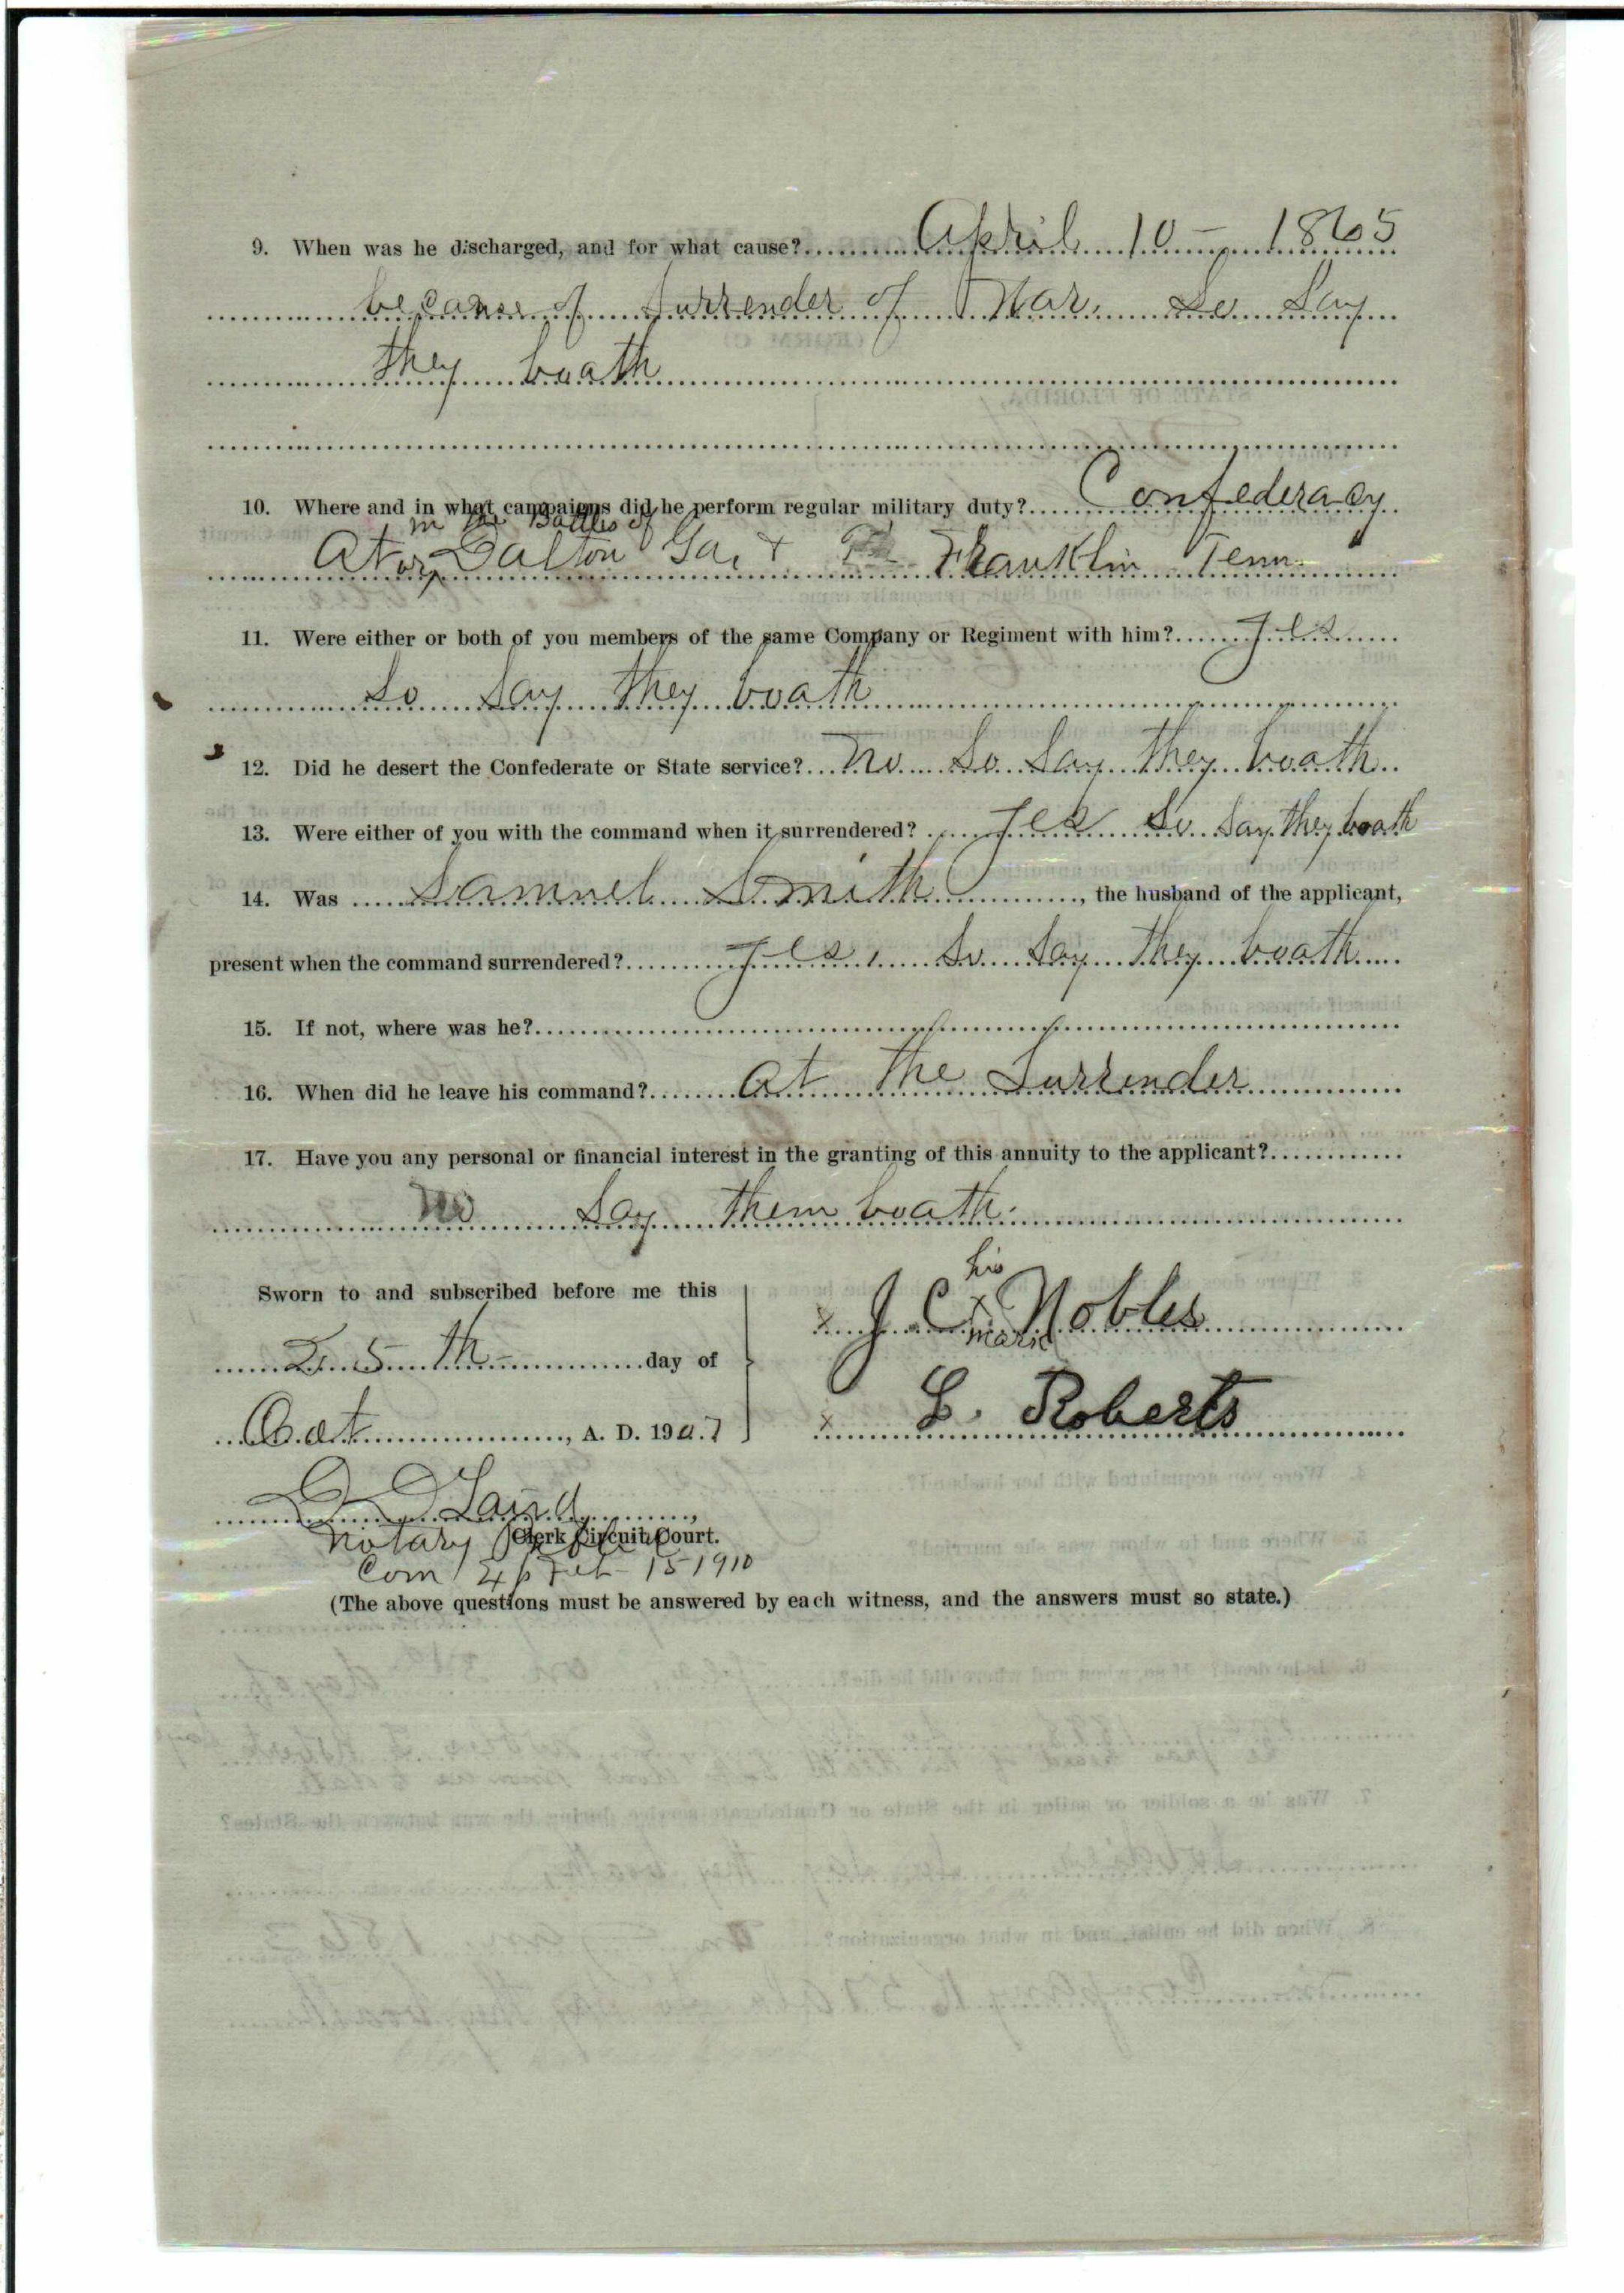 9. When was he discharged, and for what cause? April 10 – 1865
because of Surrender of War. So Say
they boath
10. Where and in what campaigns did he perform regular military duty? Confederacy
in the Battles of
At or Dalton Ga, + Franklin Tenn.
11. Were either or both of you members of the same Company or Regiment with him? Yes
So Say they boath
12. Did he desert the Confederate or State service? No So Say they boath
13. Were either of you with the command when it surrendered? Yes So Say they boath
14. Was Samuel Smith, the husband of the applicant,
present when the command surrendered? Yes, So Say they boath
15. If not, where was he?
16. When did he leave his command? At the Surrender
17. Have you any personal or financial interest in the granting of this annuity to the applicant?
No Say them boath.
Sworn to and subscribed before me this
25th day of
Oct, A. D. 1907
his
x J. C. x Nobles
mark
x L. Roberts
D D Laird,
Clerk Circuit Court.
Notary Public
Com Exp Feb 15 1910
(The above questions must be answered by each witness, and the answers must so state.)